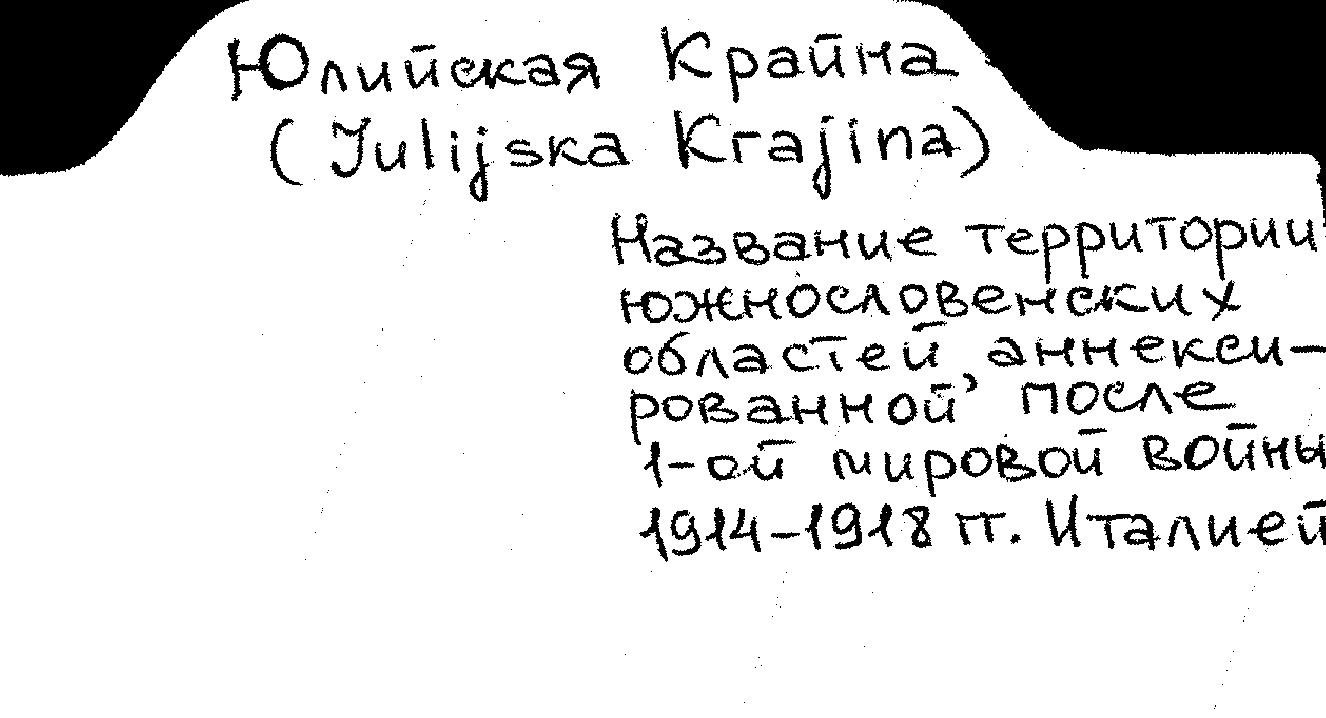 Юлийская Крайна
(Julijska Krajina)
Название территории
южнословенских
областей, аннекси-
рованной после
1-ой мировой войны
1914-1918 гг. Италией